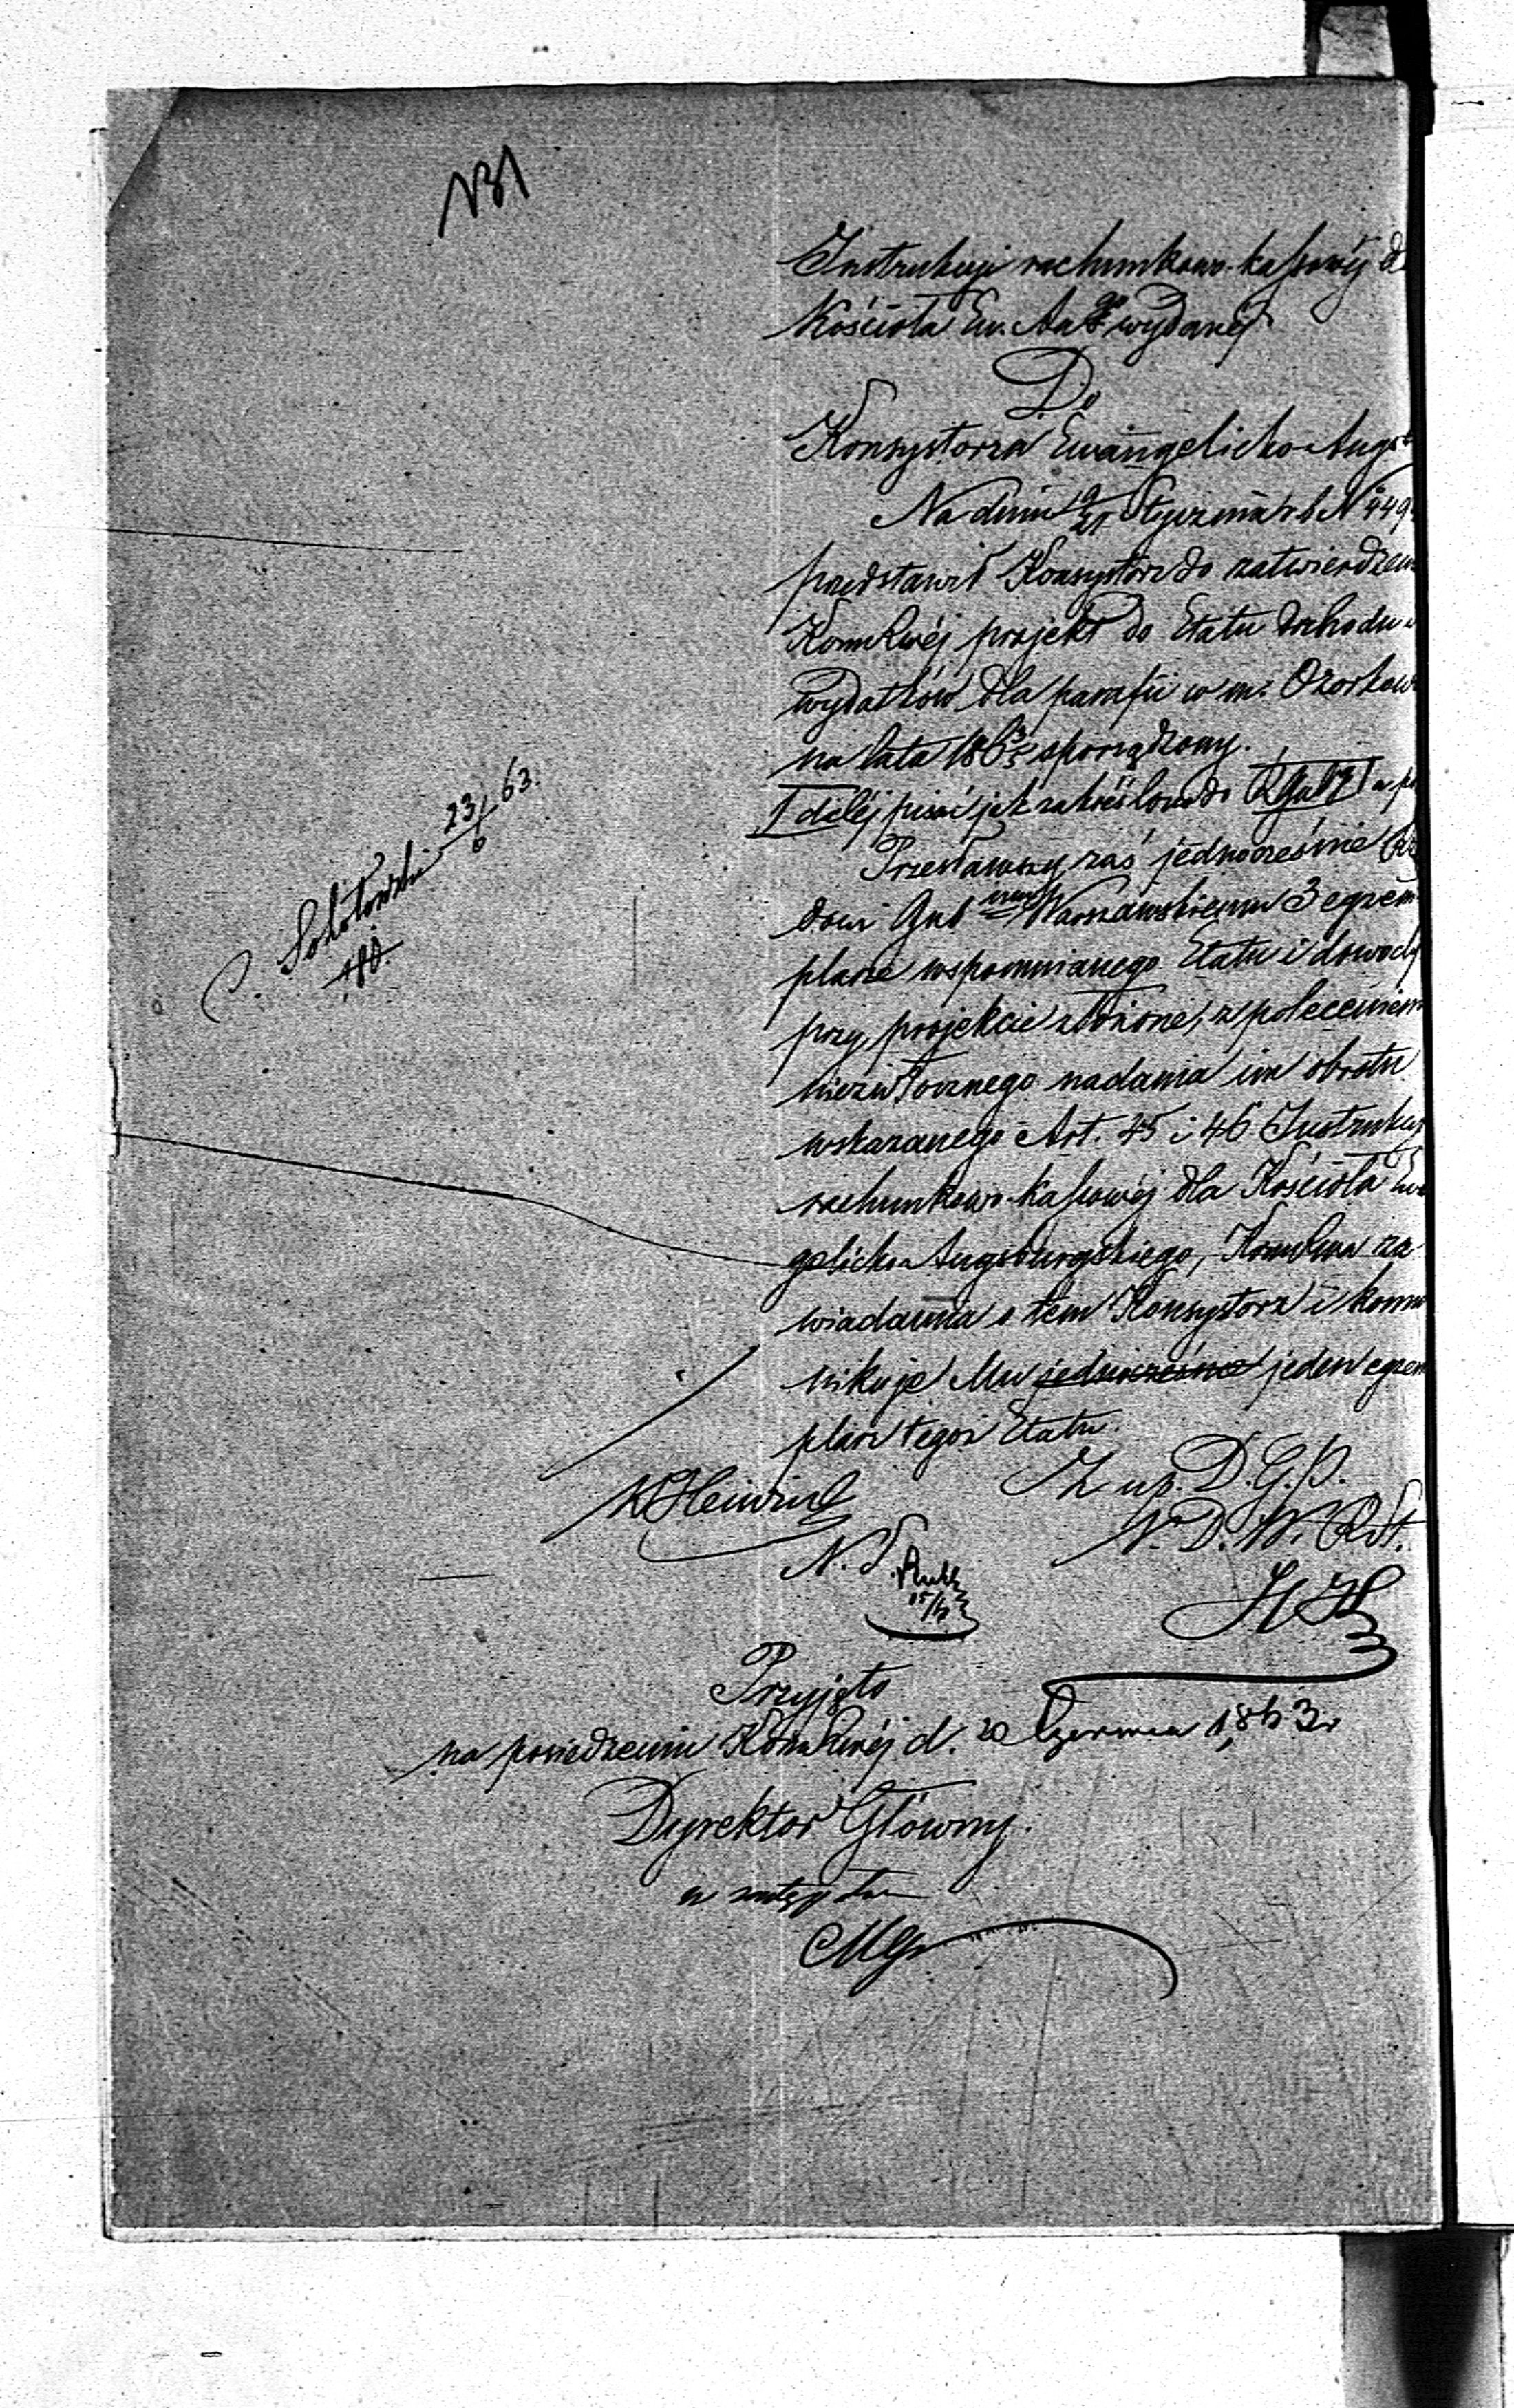 Instrukcyi rachunkowo-kassowéj d
Kościoła Ew. Aug<sup>go</sup> wydanéj.
Do
Konsystorza Ewangelicko-Augs
Na dniu 9/21 Stycznia r. b. N 449
przedstawił Konsystorz do zatwierdzeni
Kom Rwéj projekt do Etatu dochodu i
wydatków dla parafii w m. Ozorkowi
na lata 186 3/5 sporządzony.
I daléj pisać jak zakréślono do RGub
Przesławszy zaś jednocześnie Rzą
dowi Gub Warszawskiemu 3 egzem
plarze wspomnianego Etatu i dowody
przy projekcie złożone, z poleceniem
niezwłocznego nadania im obrotu
wskazanego Art. 45 i 46 Instrukcyi
rachunkowo-kassowéj dla Kościoła Ewa
gelicko Augsburgskiego, Kom Rwa za-
wiadamia o tem Konsystorz i komu
nikuje Mu jednocześnie jeden egzem
plarz tegoż Etatu.
Sokołowski 23/6 63.
180
KHeinrich
Z up. D. G. P.
N. D. W. RSt.
N. S.
Przyjęto
na posiedzeniu Kom Rwéj d. 20 Czerwca 1863 r
Dyrektor Główny.
w zastępstwie